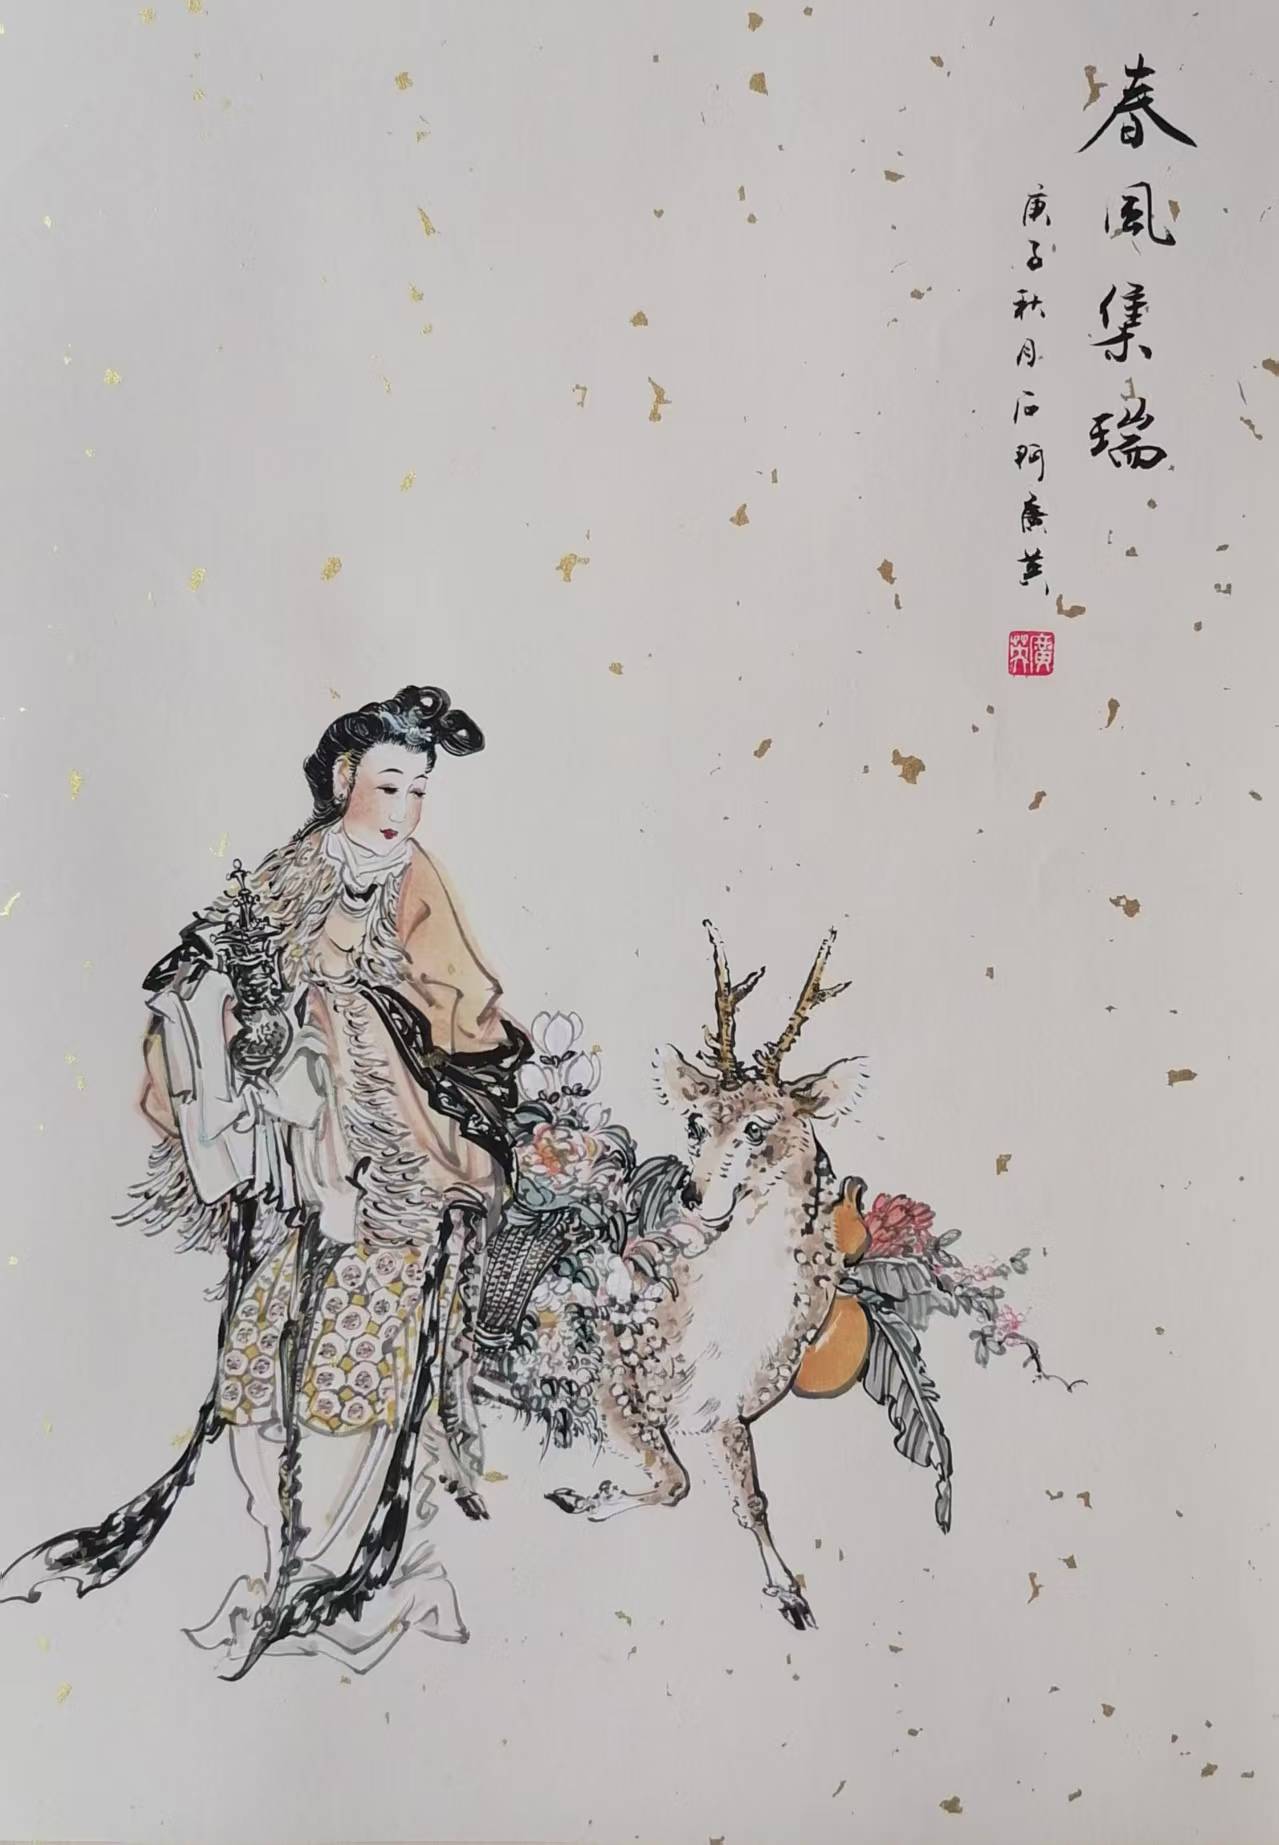 春風集瑞
庚子秋月石門廣英
廣英